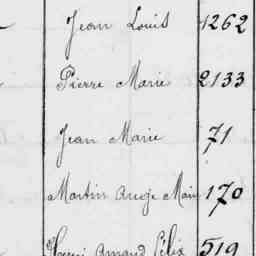 Jean Louis 1262
Pierre Marie 2133
Jean Marie 71
Martin Marie 170
Henri Amand Félix 519